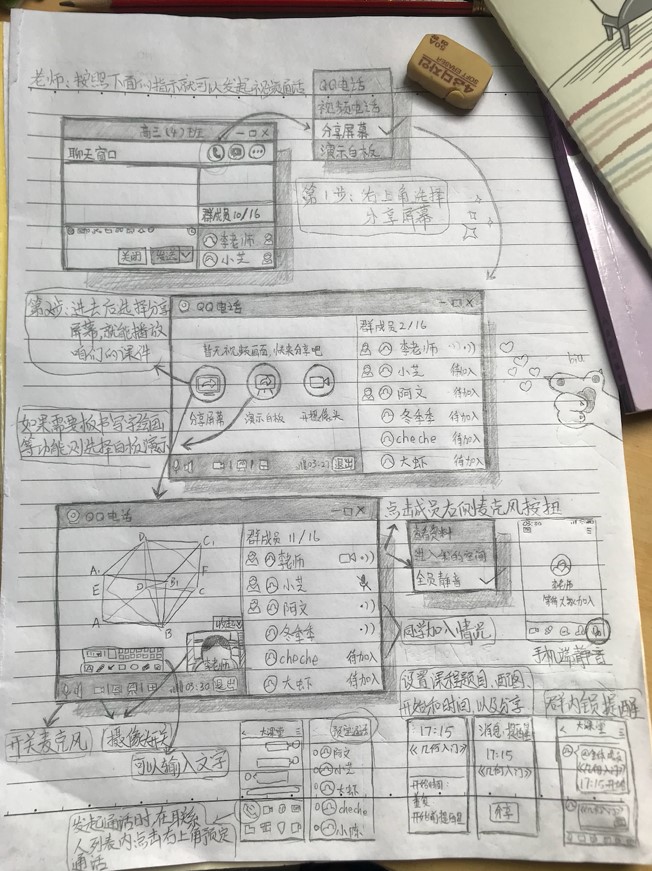 老师:按照下面的指示就可以发起视频通话
QQ电话
视频电话
分享屏幕
演示白板
高三(4)班
聊天窗口
群成员 10/16
李老师
小芝
关闭
发送
第1步:右上角选择
分享屏幕
第2步:进去后选择分享
屏幕,就能播放
咱们的课件
如果需要板书写字绘画
等功能则选择白板演示
QQ电话
暂无视频画面,快来分享吧
分享屏幕
演示白板
开摄像头
03:27
退出
群成员 2/16
李老师
小芝 待加入
阿文 待加入
冬季季 待加入
cheche 待加入
大虾 待加入
QQ电话
D₁
C₁
A₁
E
D
B₁
F
C
A
B
李老师
03:30
退出
群成员 11/16
李老师
小芝
阿文
冬季季
cheche 待加入
大虾 待加入
点击成员右侧麦克风按钮
全员静音
同学加入情况
李老师
手机端静音
开关麦克风
摄像开关
可以输入文字
发起通话时在联系
人列表内点击右上角预定
通话
大课堂
阿文
小芝
大虾
cheche
小陈
设置课程题目、画图、
开始和时间,以及分享
17:15
《几何入门》
开始时间:
重复
17:15
《几何入门》
分享
群内全员提醒
大课堂
@全体成员
《几何入门》
17:15开始
4SUDA
SOFT ERASER